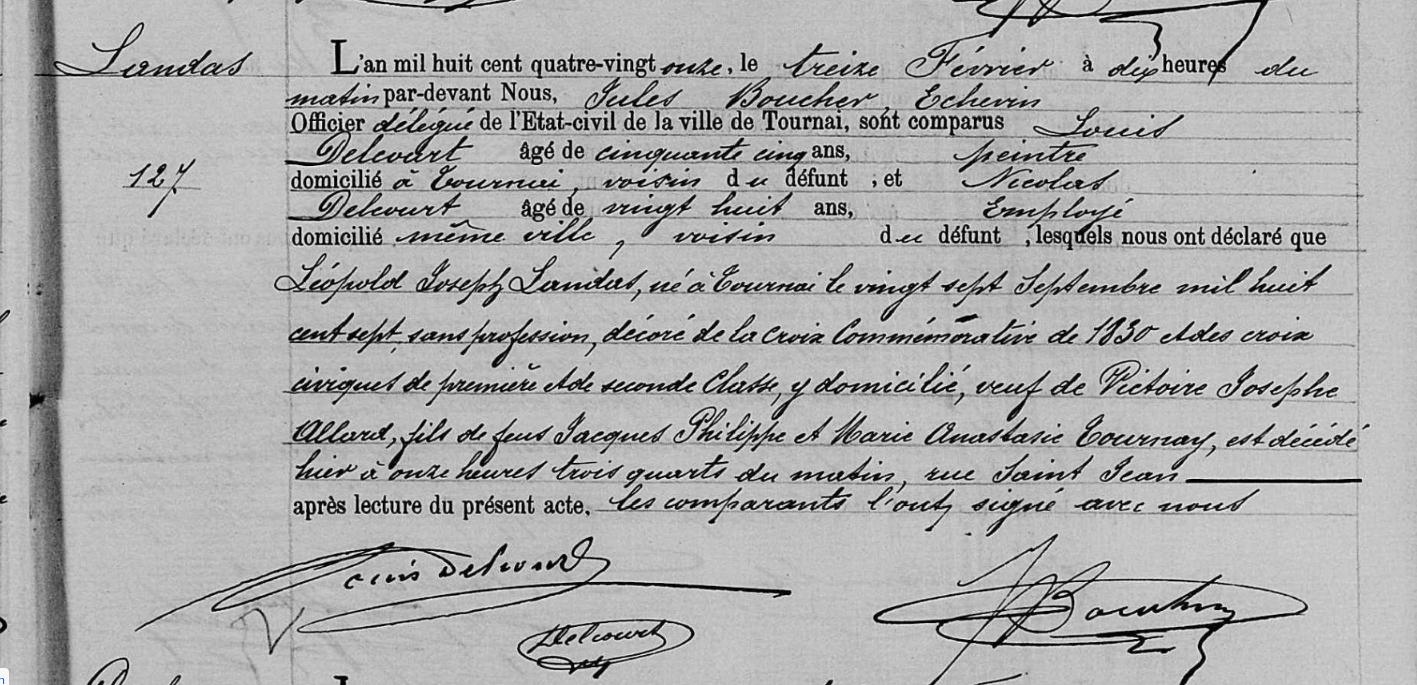 Landas
127
L'an mil huit cent quatre-vingt onze, le treize Février à dix heures du
matin par-devant Nous, Jules Boucher, Echevin
Officier délégué de l'Etat-civil de la ville de Tournai, sont comparus Louis
Delcourt âgé de cinquante cinq ans, peintre
domicilié à Tournai, voisin du défunt, et Nicolas
Delcourt âgé de vingt huit ans, Employé
domicilié même ville, voisin du défunt, lesquels nous ont déclaré que
Léopold Joseph Landas, né à Tournai le vingt sept Septembre mil huit
cent sept, sans profession, décoré de la croix Commémorative de 1830 et des croix
civiques de première et de seconde Classe, y domicilié, veuf de Victoire Josephe
Allard, fils de feus Jacques Philippe et Marie Anastasie Tournay, est décédé
hier à onze heures trois quarts du matin, rue Saint Jean
après lecture du présent acte, les comparants l'ont signé avec nous
Louis Delcourt
Delcourt
J Boucher